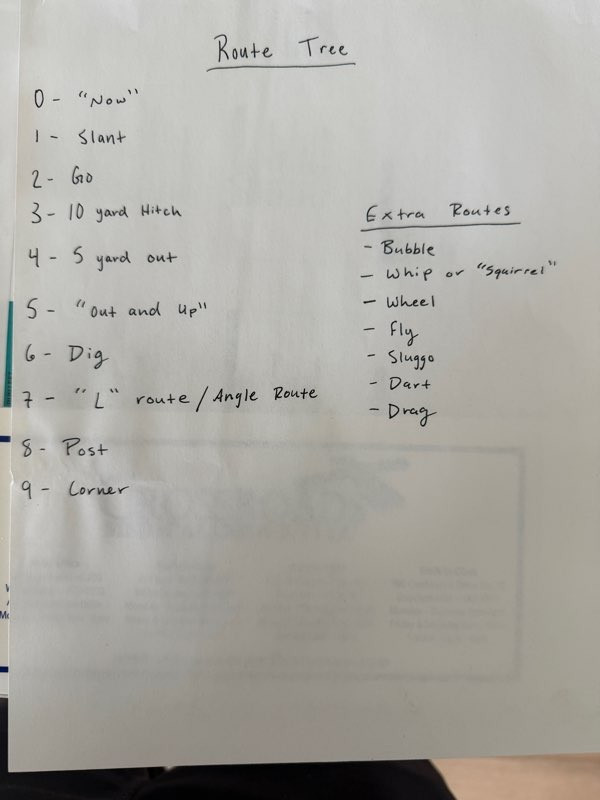 Route Tree
0 - "Now"
1 - Slant
2 - Go
3 - 10 yard Hitch
4 - 5 yard out
5 - "Out and Up"
6 - Dig
7 - "L" route / Angle Route
8 - Post
9 - Corner
Extra Routes
- Bubble
- Whip or "Squirrel"
- Wheel
- Fly
- Sluggo
- Dart
- Drag